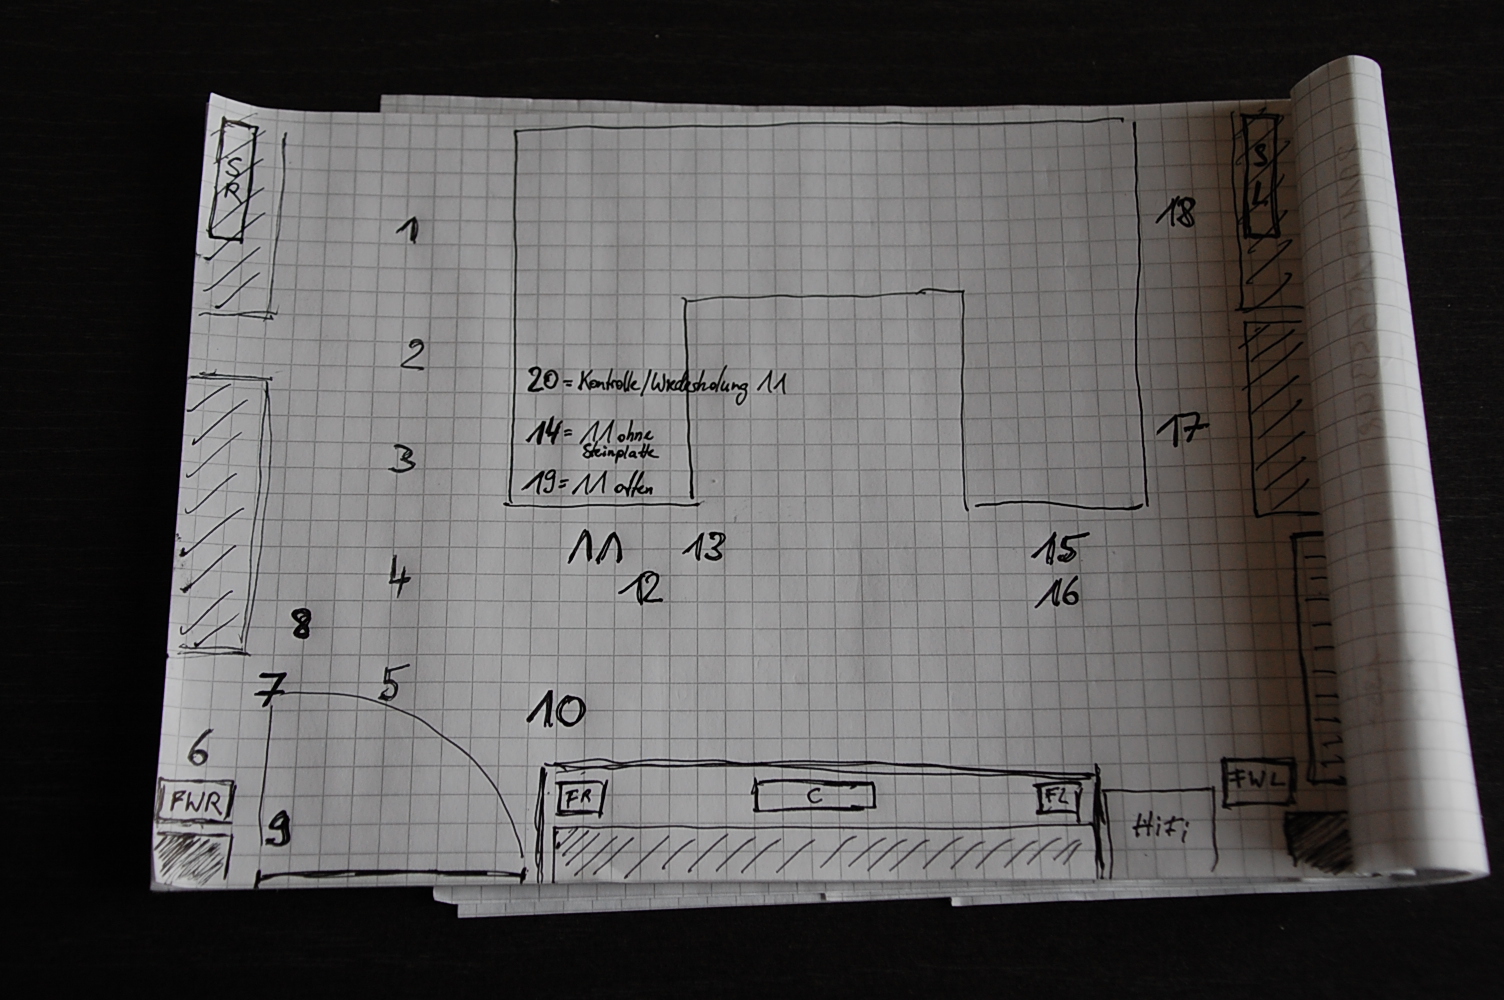 SR
SL
1
18
2
20 = Kontrolle/Wiederholung 11
14 = 11 ohne
Steinplatte
17
3
19 = 11 offen
11
13
15
4
12
16
8
7
5
10
6
FWR
FR
C
FL
FWL
9
HiFi